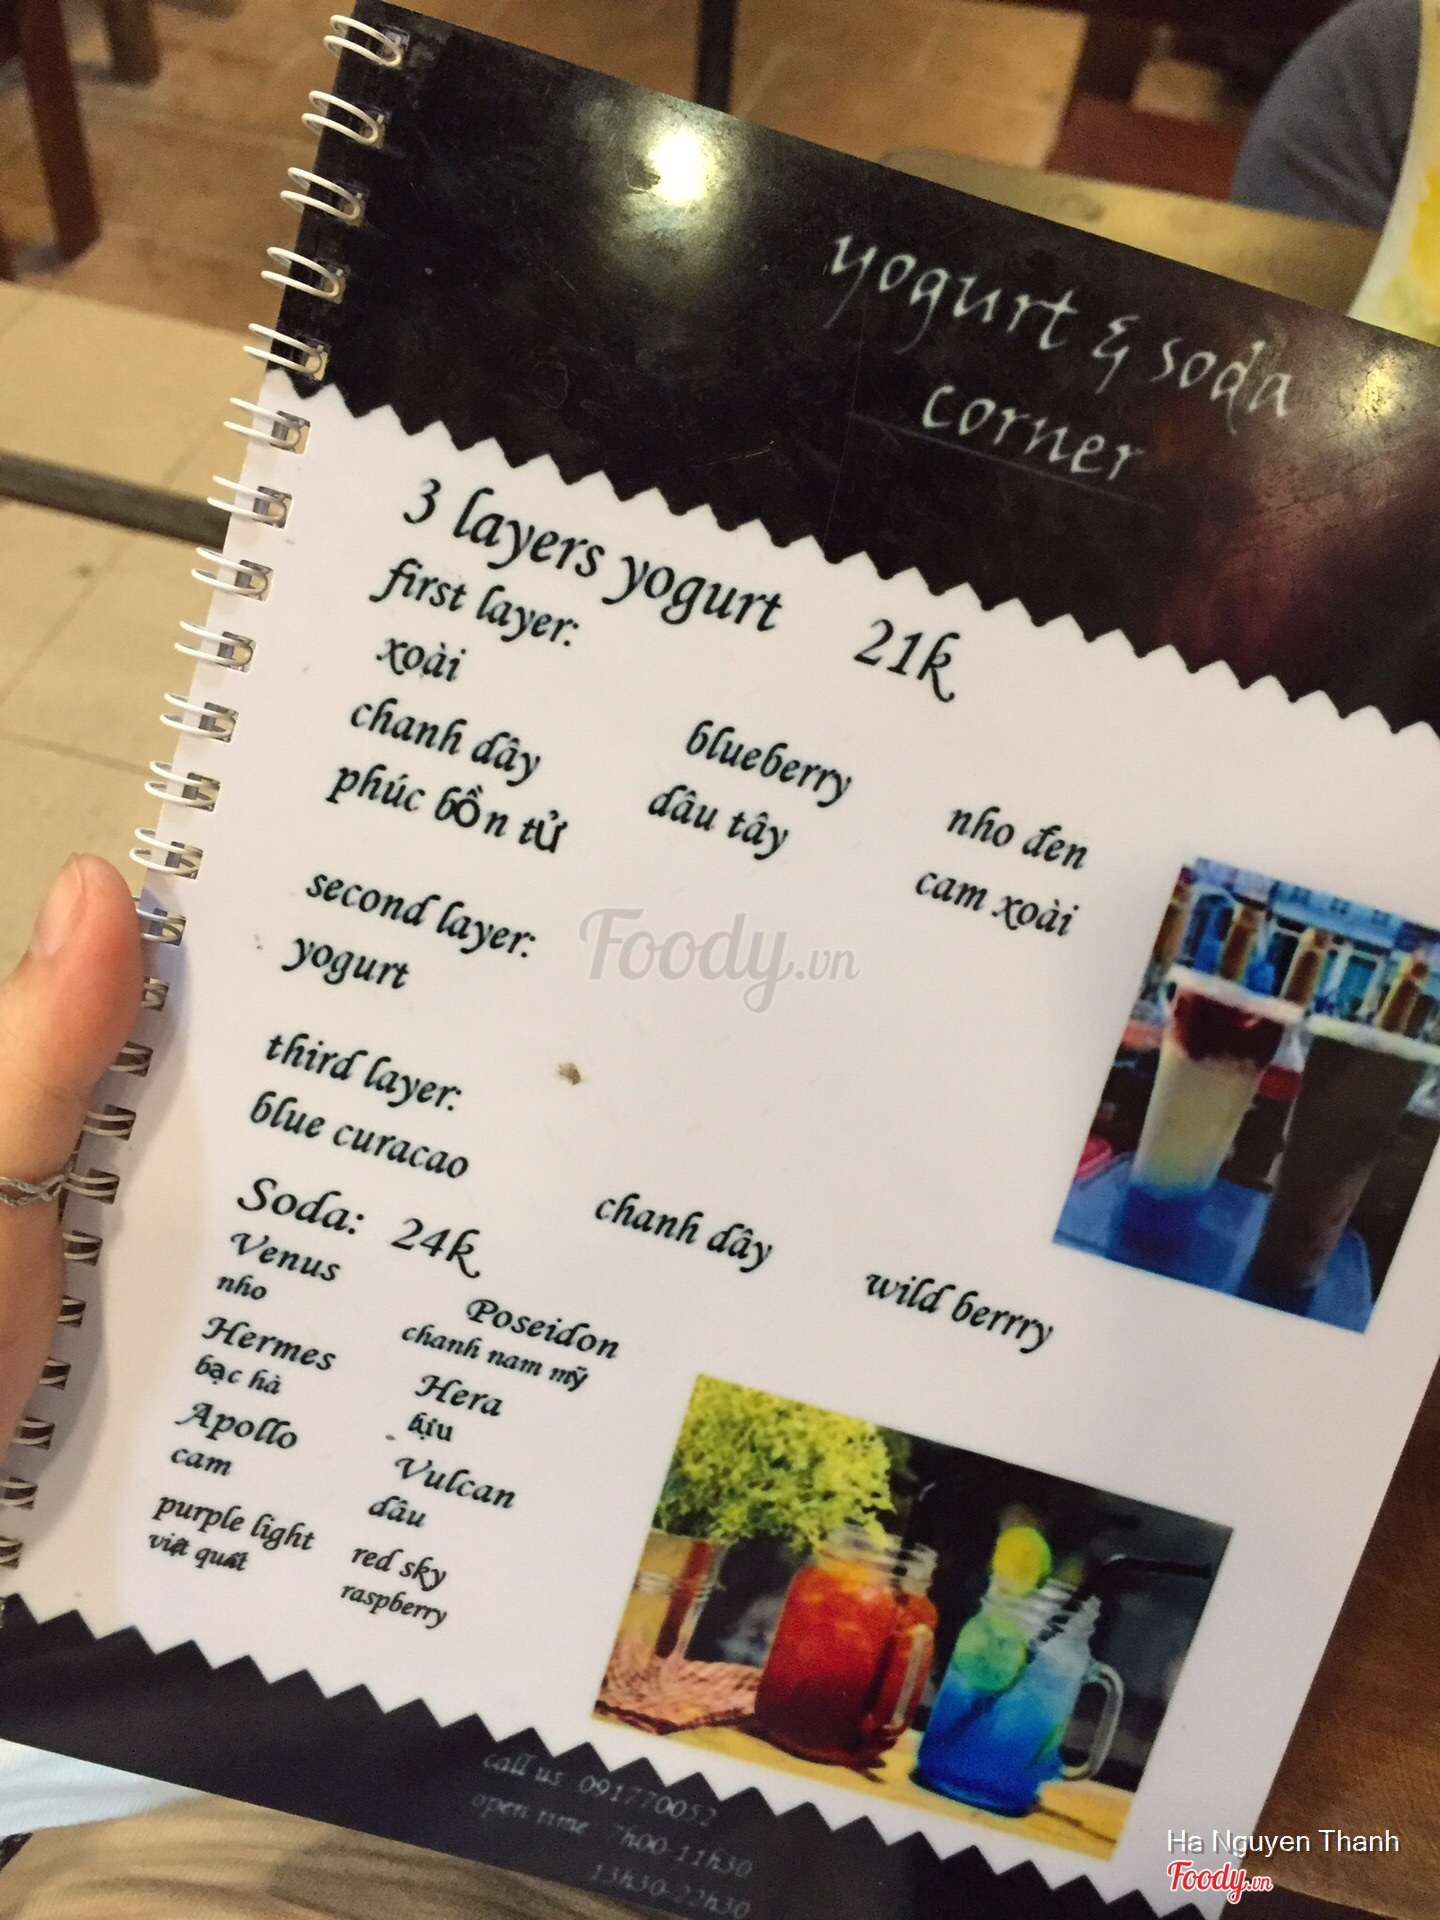 yogurt & soda
corner
3 layers yogurt 21k
first layer:
xoài blueberry nho đen
chanh dây dâu tây cam xoài
phúc bồn tử
second layer:
yogurt
third layer:
blue curacao chanh dây wild berrry
Soda: 24k
Venus Poseidon
nho chanh nam mỹ
Hermes Hera
bạc hà bịu
Apollo Vulcan
cam dâu
purple light red sky
việt quất raspberry
call us 091770052
open time 7h00-11h30
13h30-22h30
Foody.vn
Ha Nguyen Thanh
Foody.vn